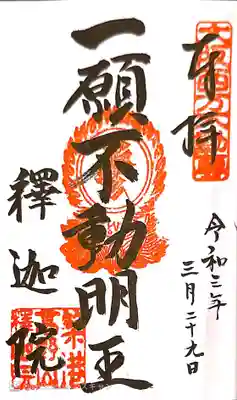 奉拝
令和三年
三月二十九日
一願不動明王
釋迦院